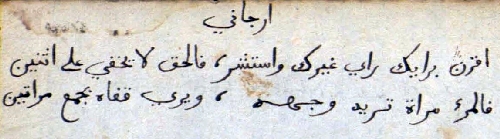 ارجاني
اقرن برايك راي غيرك واستشر، فالحق لا تخفي علي اثنين
فالمرء مراة تريه وجهه ، ويري قفاه بجمع مراتين